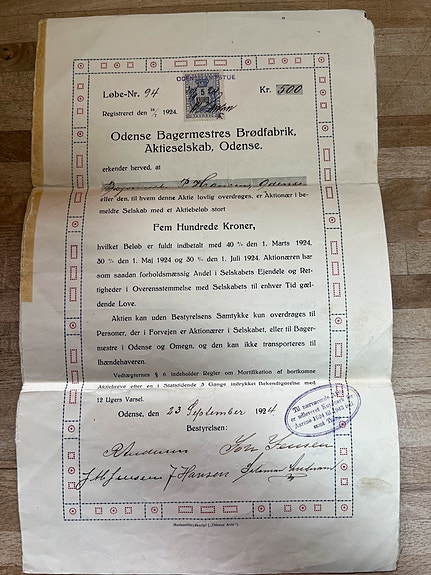 ODENSE AMTSTUE
Løbe-Nr. 94
Kr. 500
Registreret den 16/7 1924.
Odense Bagermestres Brødfabrik,
Aktieselskab, Odense.
erkender herved, at
Bagermester P. Hansen, Odense
eller den, til hvem denne Aktie lovlig overdrages, er Aktionær i be-
meldte Selskab med et Aktiebeløb stort
Fem Hundrede Kroner,
hvilket Beløb er fuldt indbetalt med 40 % den 1. Marts 1924,
30 % den 1. Maj 1924 og 30 % den 1. Juli 1924. Aktionæren har
som saadan forholdsmæssig Andel i Selskabets Ejendele og Ret-
tigheder i Overensstemmelse med Selskabets til enhver Tid gæl-
dende Love.
Aktien kan uden Bestyrelsens Samtykke kun overdrages til
Personer, der i Forvejen er Aktionærer i Selskabet, eller til Bager-
mestre i Odense og Omegn, og den kan ikke transporteres til
Ihændehaveren.
Vedtægternes § 6 indeholder Regler om Mortifikation af bortkomne
Aktiebreve efter en i Statstidende 3 Gange indrykket Bekendtgørelse med
12 Ugers Varsel.
Odense, den 23 September 1924.
Bestyrelsen:
Til nærværende Aktie
er udleveret Kuponark for
Aarene 1934 til 1943 incl.
samt Talon
R Andersen
J. M. Jensen
J Hansen